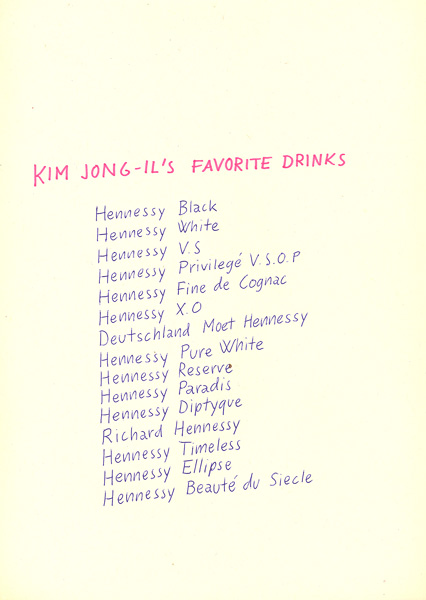 KIM JONG-IL'S FAVORITE DRINKS
Hennessy Black
Hennessy White
Hennessy V.S
Hennessy Privilegé V.S.O.P
Hennessy Fine de Cognac
Hennessy X.O
Deutschland Moet Hennessy
Hennessy Pure White
Hennessy Reserve
Hennessy Paradis
Hennessy Diptyque
Richard Hennessy
Hennessy Timeless
Hennessy Ellipse
Hennessy Beauté du Siecle